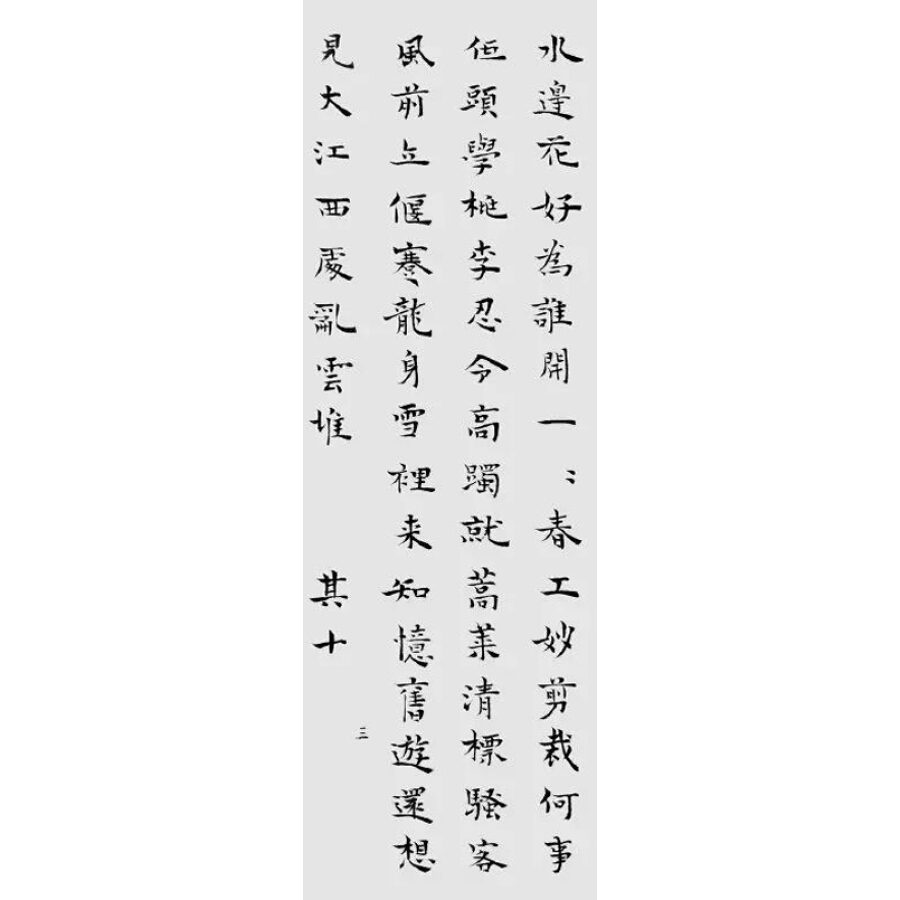 水邊花好為誰開一〻春工妙剪裁何事
低頭學桃李忍令高躅就蒿萊清標騷客
風前立偃蹇龍身雪裡来知憶舊遊還想
見大江西處亂雲堆　其十
三